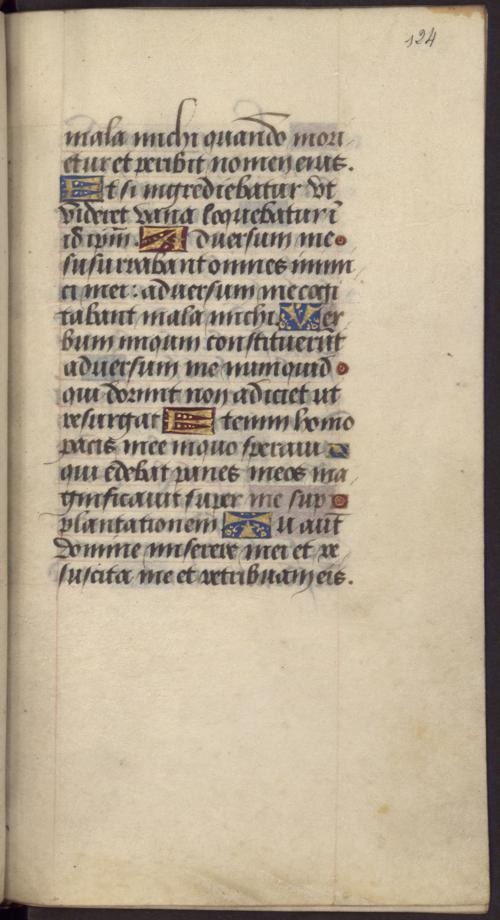 124
mala michi quando mori
etur et peribit nomen eius.
Et si ingrediebatur vt
videret vana loquebatur ī
id ipm̄. Aduersum me
susurrabant omnes inimi
ci mei: aduersum me cogi
tabant mala michi. Ver
bum iniqum constituerūt
aduersum me numquid
qui dormit non adiciet ut
resurgat Etenim homo
pacis mee in quo speraui
qui edebat panes meos ma
gnificauit super me sup
plantationem Tu aūt
domine miserere mei et re
suscita me et retribuam eis.